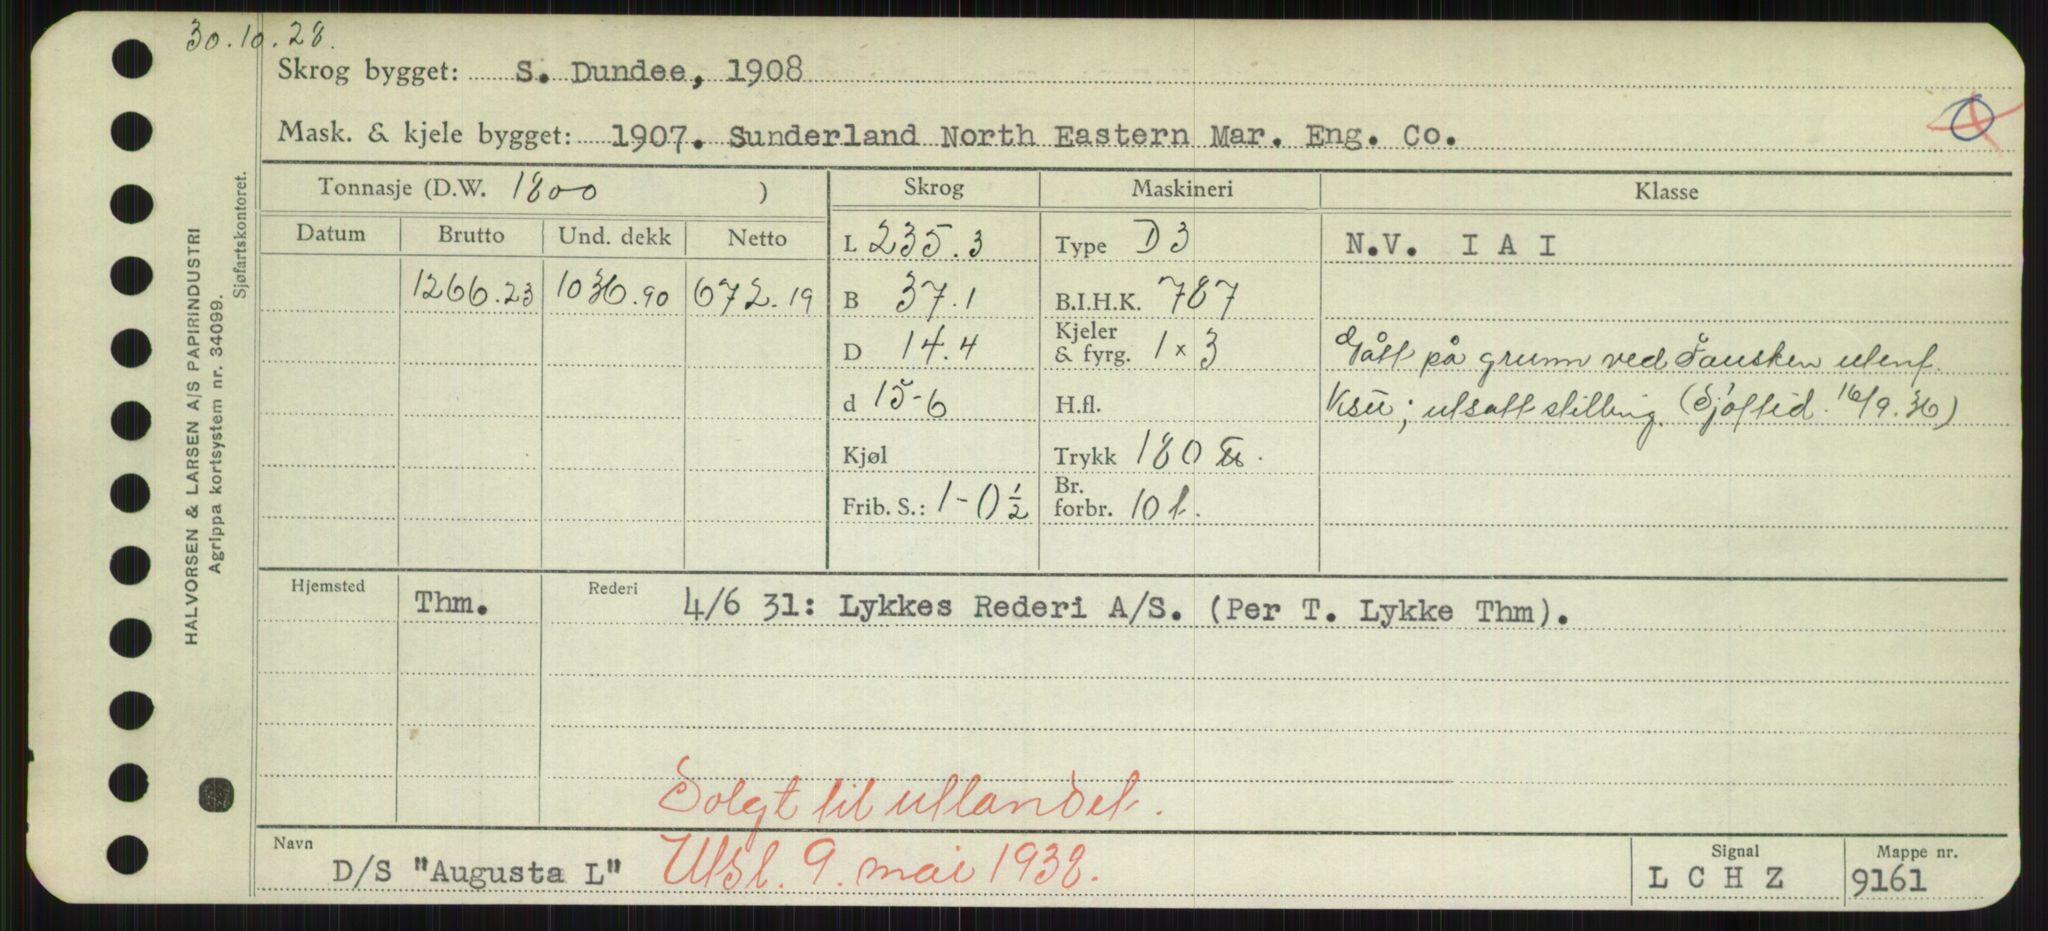 30.10.28.
Skrog bygget: S. Dundee, 1908
Mask. & kjele bygget: 1907. Sunderland North Eastern Mar. Eng. Co.
HALVORSEN & LARSEN A/S PAPIRINDUSTRI
Agrippa kortsystem nr. 34099.
Sjøfartskontoret.
Tonnasje (D.W. 1800 ) Skrog Maskineri Klasse
Datum Brutto Und. dekk Netto L 235.3 Type D3 N.V. I A I
1266.23 1036.90 672.19 B 37.1 B.I.H.K. 787
D 14.4 Kjeler & fyrg. 1 x 3 Gått på grunn ved Fausken utenf.
d 15-6 H.fl. utsatt stilling. (Sjøftid. 16/9.36)
Kjøl Trykk 180 ℔.
Frib. S.: 1-0 ½ Br. forbr. 10 t.
Hjemsted Thm. Rederi 4/6 31: Lykkes Rederi A/S. (Per T. Lykke Thm).
Solgt til utlandet.
Navn D/S "Augusta L" Utsl. 9. mai 1938. Signal L C H Z Mappe nr. 9161